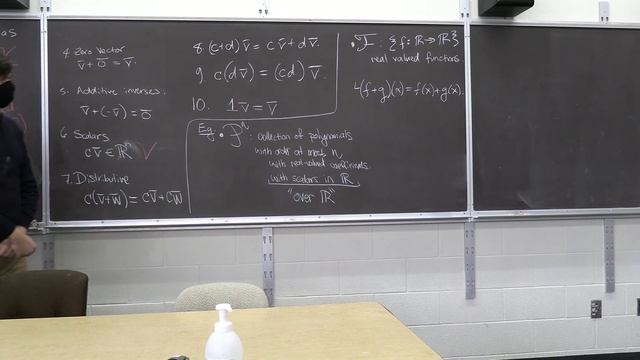 as
4. Zero Vector
v̄ + 0̄ = v̄.
5. Additive inverses.
v̄ + (-v̄) = 0̄
6. Scalars
c v̄ ∈ ℝⁿ ✓
7. Distributive
c(v̄ + w̄) = c v̄ + c w̄
8. (c+d) v̄ = c v̄ + d v̄.
9. c(d v̄) = (cd) v̄.
10. 1 v̄ = v̄
Eg • 𝒫ⁿ : collection of polynomials
with order at most n,
with real-valued coefficients.
with scalars in ℝ
"over ℝ"
• ℱ : {f: ℝ → ℝ}
real valued functions.
(f+g)(x) = f(x) + g(x).